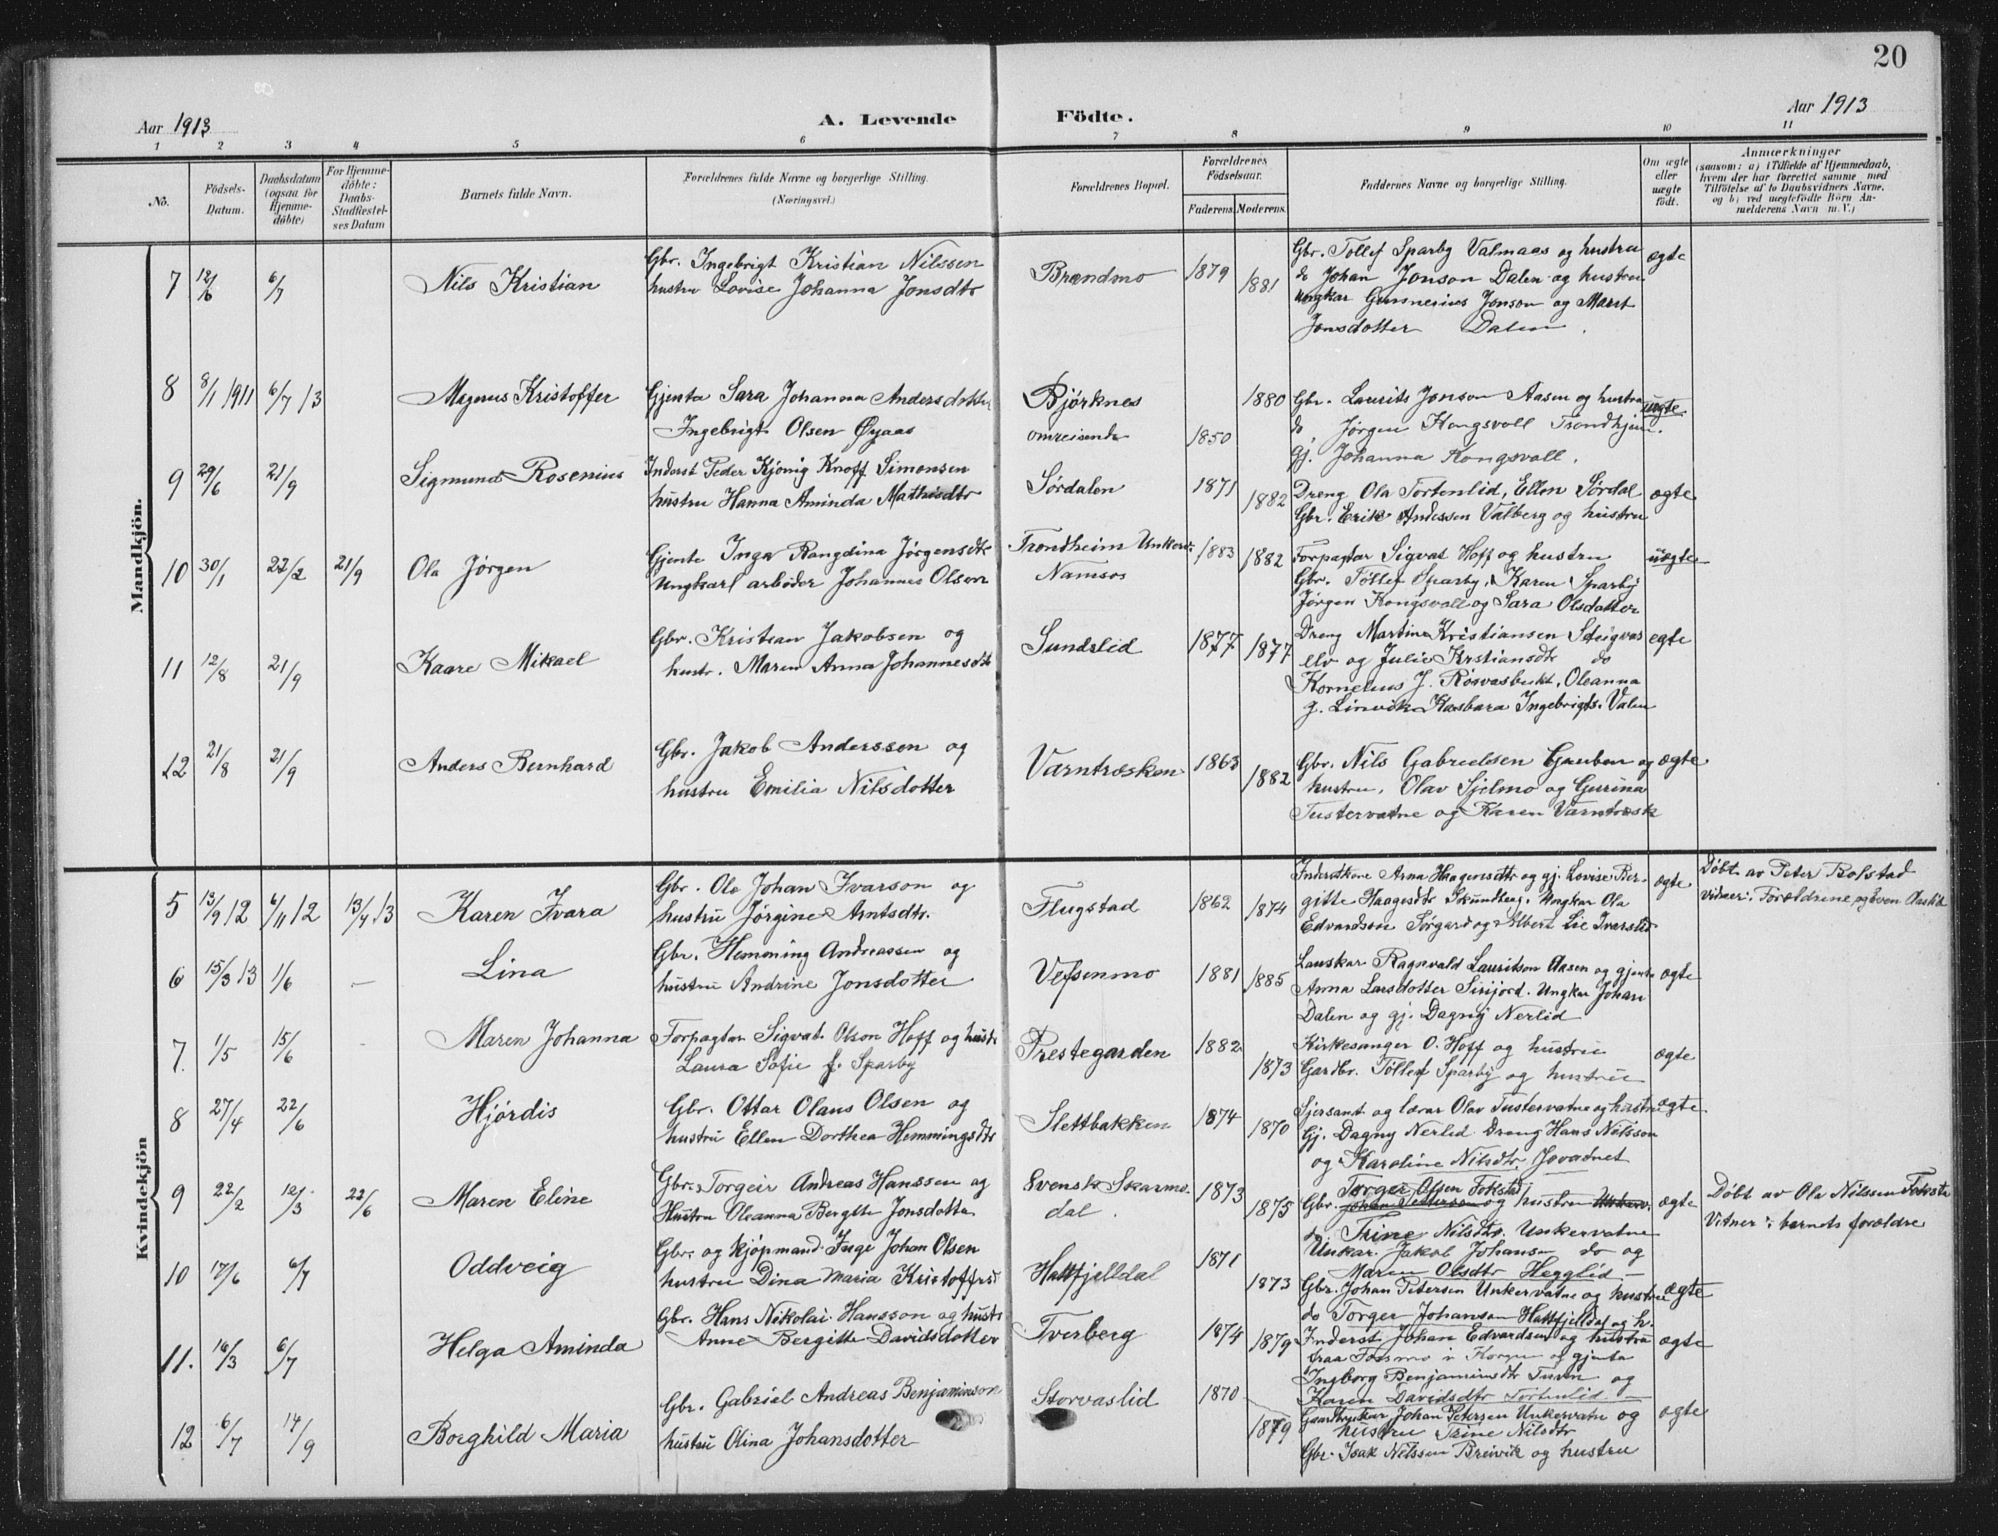 20
Aar 1913
A. Levende Födte.
Aar 1913
1 2 3 4 5 6 7 8 9 10 11
No.
Födsels-Datum.
Daabsdatum (ogsaa for Hjemme-döbte)
For Hjemme-döbte: Daabs-Stadfæstel-ses Datum
Barnets fulde Navn.
Forældrenes fulde Navne og borgerlige Stilling. (Næringsvei.)
Forældrenes Bopæl.
Forældrenes Födselsaar.
Faderens. Moderens.
Faddernes Navne og borgerlige Stilling.
Om ægte eller uægte födt.
Anmærkninger
(saasom: a) i Tilfælde af Hjemmedaab, hvem der har forrettet samme, med Tilföielse af to Daabsvidners Navne, og b) ved uægtefödte Börn Anmelderens Navn m. V.)
Mandkjön.
7 12/6 6/7 Nils Kristian
Gbr. Ingebrigt Kristian Nilssen
hustru Lovise Johanna Jonsdtr
Brændmo 1879 1881
Gbr. Tollef Sparby Valmaas og hustru
do Johan Jonson Dalen og hustru
Ungkar Gunnerius Jonson og Marit
Jonsdotter Dalen.
ægte
8 8/1 1911 6/7 13 Magnus Kristoffer
Gjenta Sara Johanna Andersdotter
Ingebrigt Olsen Øyaas
Bjørknes
omreisende 1850 1880
Gbr. Laurits Jonson Aasen og hustru
do Jørgen Kongsvoll Trondhjem.
Gj. Johanna Kongsvoll.
uægte
9 29/6 21/9 Sigmund Rosenius
Inderst Peder Kjönig Knoff Simonsen
hustru Hanna Aminda Mathisdtr
Sørdalen 1871 1882
Dreng Ola Tortenlid, Ellen Sørdal
Gbr. Erik Anderssen Valberg og hustru
ægte
10 30/1 22/2 21/9 Ola Jørgen
Gjente Inga Rangdina Jørgensdtr
Ungkarl arbeder Johannes Olsen
Trondheim Unkerv.
Namsos 1883 1882
Forpagtar Sigvat Hoff og hustru
Gbr. Töllef Sparby, Karen Sparby
Jørgen Kongsvoll og Sara Olsdotter
uægte
11 12/8 21/9 Kaare Mikael
Gbr. Kristian Jakobsen og
hustr. Maren Anna Johannesdtr
Sundslid 1877 1877
Dreng Martin Kristiansen Stuigvas
elv og Julie Kristiansdtr do
Kornelius J. Røsvasbukt, Oleanna
J. Linvik Kasbara Ingebrigts. Valen
ægte
12 21/8 21/9 Anders Bernhard
Gbr. Jakob Anderssen og
hustru Emilia Nilsdotter
Varntræsken 1863 1882
Gbr. Nils Gabrielsen Gruben og
hustru, Olav Sjelmo og Gurina
Tustervatne og Karen Varntræsk
ægte
Kvindekjön
5 13/9 12 6/11 12 13/4 13 Karen Ivara
Gbr. Ola Johan Ivarson og
hustru Jørgine Arntsdtr.
Flugstad 1862 1874
Inderstkone Arna Haagensdtr og gj. Lovise Ber-
gitte Haagesdtr Skundberg. Ungkar Ola
Edvardson Sørgard og Albert Lie Ivarslid
ægte
Døbt av Peter Rolstad
vidner: Forældrene og Even Aaslid
6 15/3 13 1/6 – Lina
Gbr. Hemming Andreassen og
hustru Andrine Jonsdotter
Vefsenmo 1881 1885
Lauskar Ragnvald Lauritson Aasen og gjenta
Anna Larsdotter Sirijord. Ungkar Johan
Dalen og gj. Dagny Nerlid
ægte
7. 1/5 15/6 Maren Johanna
Forpagtar Sigvat Olson Hoff og hustr
Laura Sofie f. Sparby
Prestegarden 1882 1873
Kirkesanger O. Hoff og hustru
Gardbr. Töllef Sparby og hustru
ægte
8 27/4 22/6 Hjørdis
Gbr. Ottar Olaus Olsen og
hustru Ellen Dorthea Hemmingsdtr
Slettbakken 1874 1870
Sjersant og lærar Olav Tustervatne og hustru
Gj. Dagny Nerlid Dreng Hans Nilsson
og Karoline Nilsdtr. Jovatnet
ægte
9 22/2 12/3 22/6 Maren Eline
Gbr. Torgeir Andreas Hanssen og
Hustru Oleanna Bergitte Jonsdotter
Svensk Skarmo.
dal. 1873 1875
Torger Olsen Fokstad
Gbr. Johan Pettersen og hustru Unkerv.
do. Trine Nilsdtr. Unkervatne
ægte
Døbt av Ola Nilssen Tokste
Vitner: barnets forældre
10 17/6 6/7 Oddveig
Gbr. og kjøpmand Inge Johan Olsen
hustru Dina Maria Kristoffersd
Hatfjelldal 1871 1873
Unkar. Jakob Johansen do og
Maren Olsdtr Hegglid –
Gbr. Johan Petersen Unkervatne og hustru
do Torger Johansen Hattfjelldal og h.
ægte
11. 16/3 6/7 Helga Aminda
Gbr. Hans Nikolai Hansson og hustr
Anne Bergitte Davidsdotter
Tverberg 1874 1879
Inderst Johan Edvardsen og hustru
fraa Forsmo i Korgen og gjenta
Ingborg Benjaminsdtr Tuven og
Karen Davidsdtr Tortenlid –
ægte
12 6/7 14/9 Borghild Maria
Gbr. Gabriel Andreas Benjaminson
hustru Olina Johansdotter
Storvaslid 1870 1879
Gaardbrukar Johan Petersen Unkervatn og
hustru Trine Nilsdtr
Gbr. Isak Nilssen Breivik og hustru
ægte